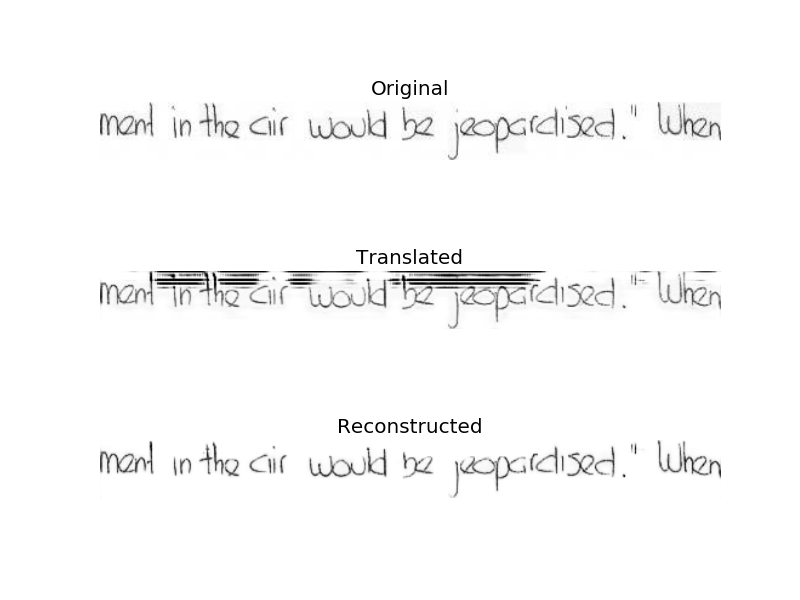 Original
ment in the air would be jeopardised." When
Translated
ment in the air would be jeopardised." When
Reconstructed
ment in the air would be jeopardised." When